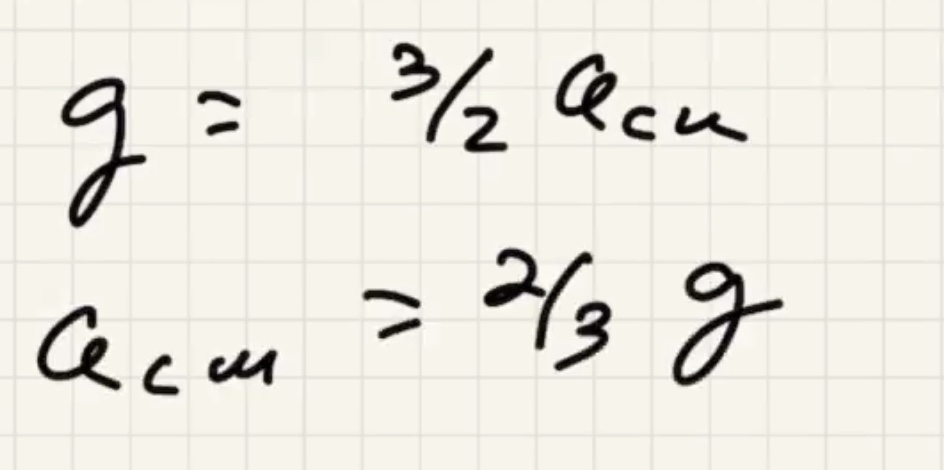 g = 3/2 a_cm
a_cm = 2/3 g